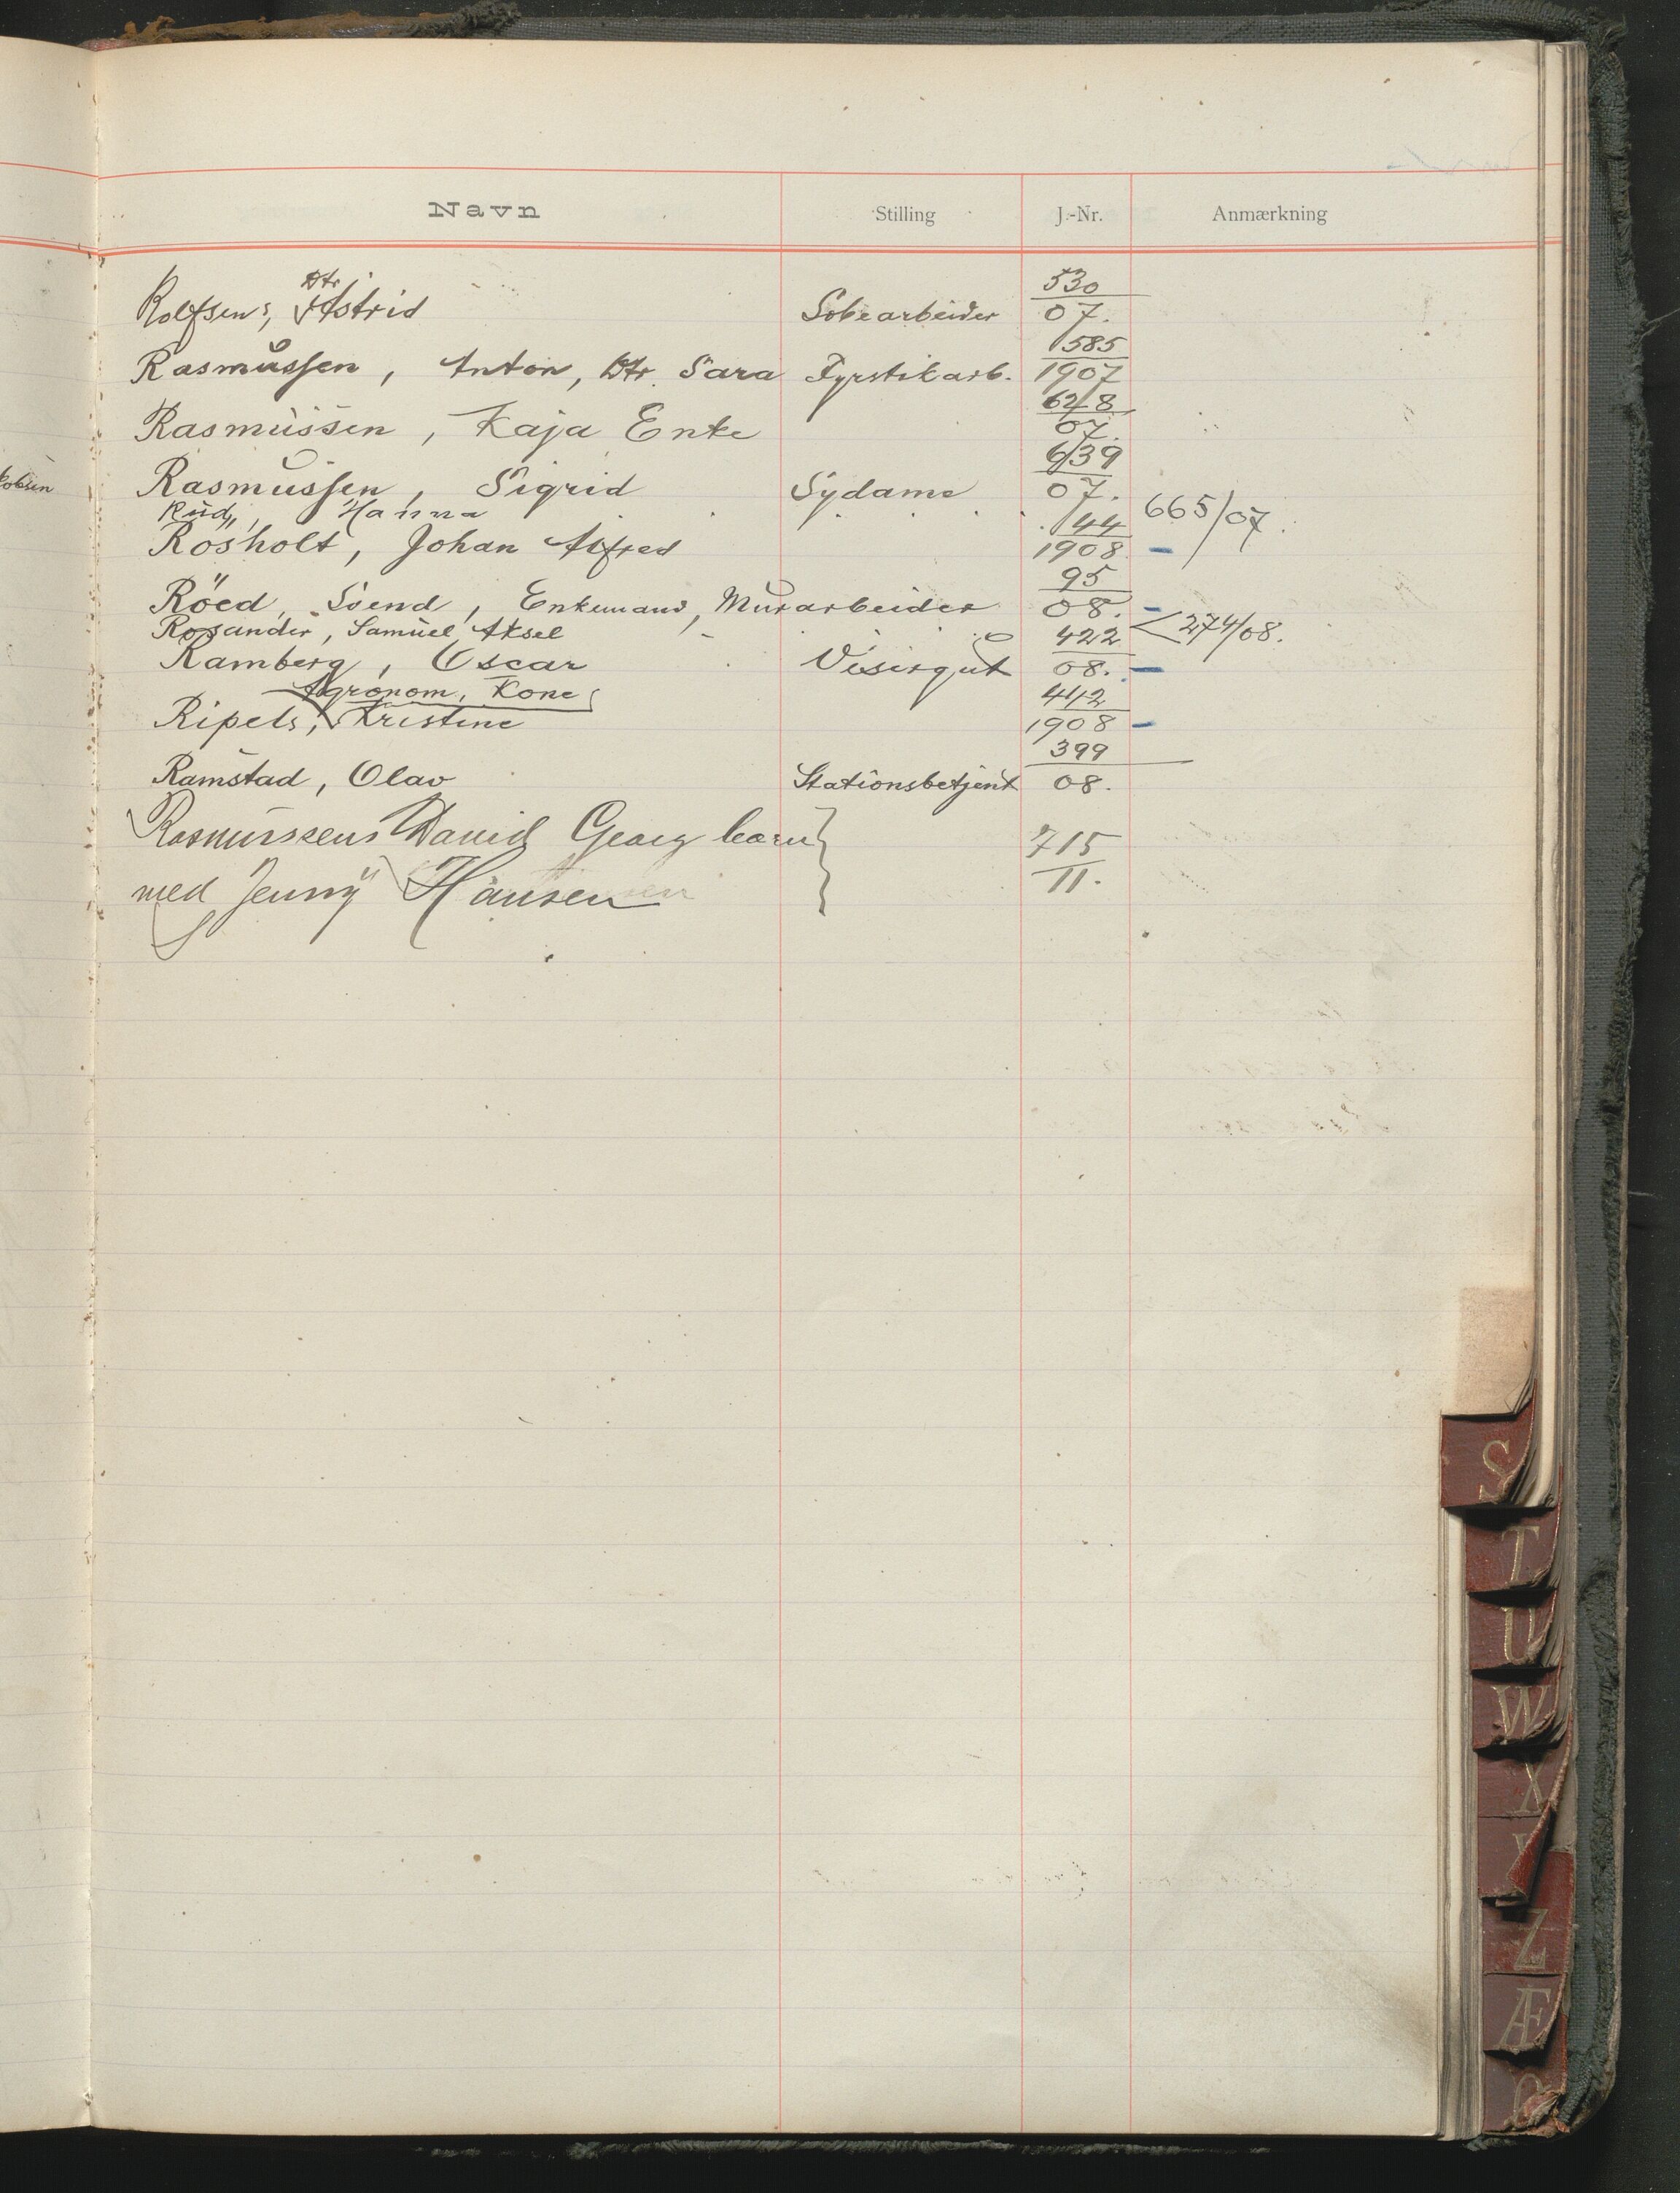 Navn Stilling J.-Nr. Anmærkning
Dtr 530
Rolfsens, Astrid Sobearbeider 07.
585
Rasmussen, Anton, Dtr. Sara Fyrstikarb. 1907
628
Rasmussen, Kaja Enke 07.
639
Rasmussen, Sigrid Sydame 07.
Rud, Hanna 665/07.
144
Rosholt, Johan Alfred 1908 -
95
Röed, Svend, Enkemand, Murarbeider 08. -
Rosander, Samuel Aksel 274/08.
422
Ramberg, Oscar Visergut 08. -
Agronom, Kone 442
Ripels, Kristine 1908 -
399
Ramstad, Olav Stationsbetjent 08.
Rasmussens David Georg barn 715
med Jenny Hansen 11.
S
T
U
W
X
Y
Z
Æ
Ø